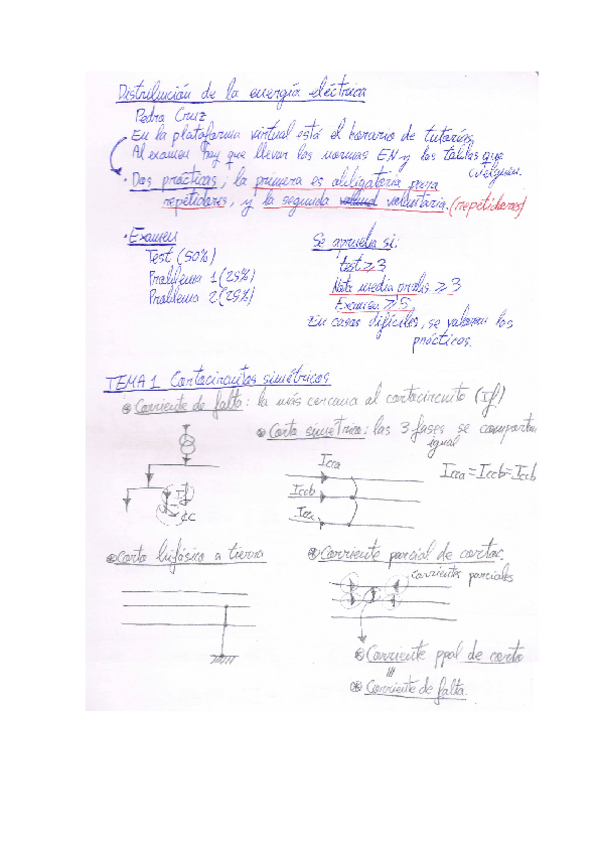 Distribución de la energía eléctrica
Pedro Cruz
En la plataforma virtual está el horario de tutorías
Al examen hay que llevar las normas EN y las tablas que
cuelguen.
· Dos prácticas, la primera es obligatoria para
repetidores, y la segunda voluntaria. (repetidores)
· Examen
Test (50%)
Problema 1 (25%)
Problema 2 (25%)
Se aprueba si:
test ≥ 3
Nota media probls ≥ 3
Examen ≥ 5
En casos difíciles, se valoran las
prácticas.
TEMA 1 Cortocircuitos simétricos
Corriente de falta: la más cercana al cortocircuito (If)
Corto simétrico: las 3 fases se comportan
igual
If
cc
Icca
Iccb
Iccc
Icca = Iccb = Iccb
Corto bifásico a tierra
Corriente parcial de cortoc.
corrientes parciales
Corriente ppal de corto
≡
Corriente de falta